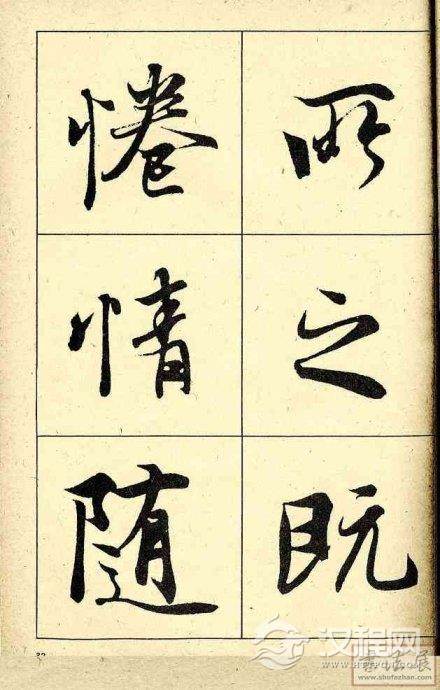 所之既
倦情随
32
汉程网
www.shufazhan.com